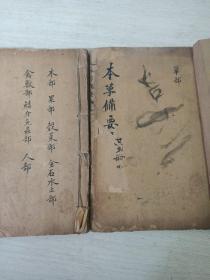 草部
本草備要
共五册
木部 果部 穀菜部 金石水土部
禽獸部 鱗介魚蟲部 人部